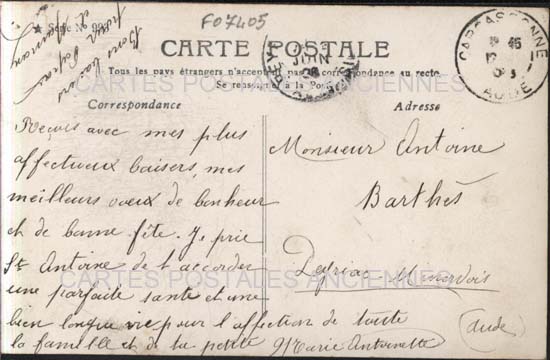 FO7405
★ Série Nº
Bons baisers
CARTE POSTALE
Tous les pays étrangers n'acceptent pas la correspondance au recto
Se renseigner à la Poste
JUIN
08
CARCASSONNE
AUDE
Correspondance
Adresse
Reçois avec mes plus
affectueux baisers, mes
meilleurs voeux de bonheur
et de bonne fête. Je prie
St Antoine de t'accorder
une parfaite santé et une
bien longue vie pour l'affection de toute
la famille et de ta petite Marie Antoinette
Monsieur Antoine
Barthès
Pepieux Minervois
(Aude)
CARTES POSTALES ANCIENNES
CARTES POSTALES ANCIENNES